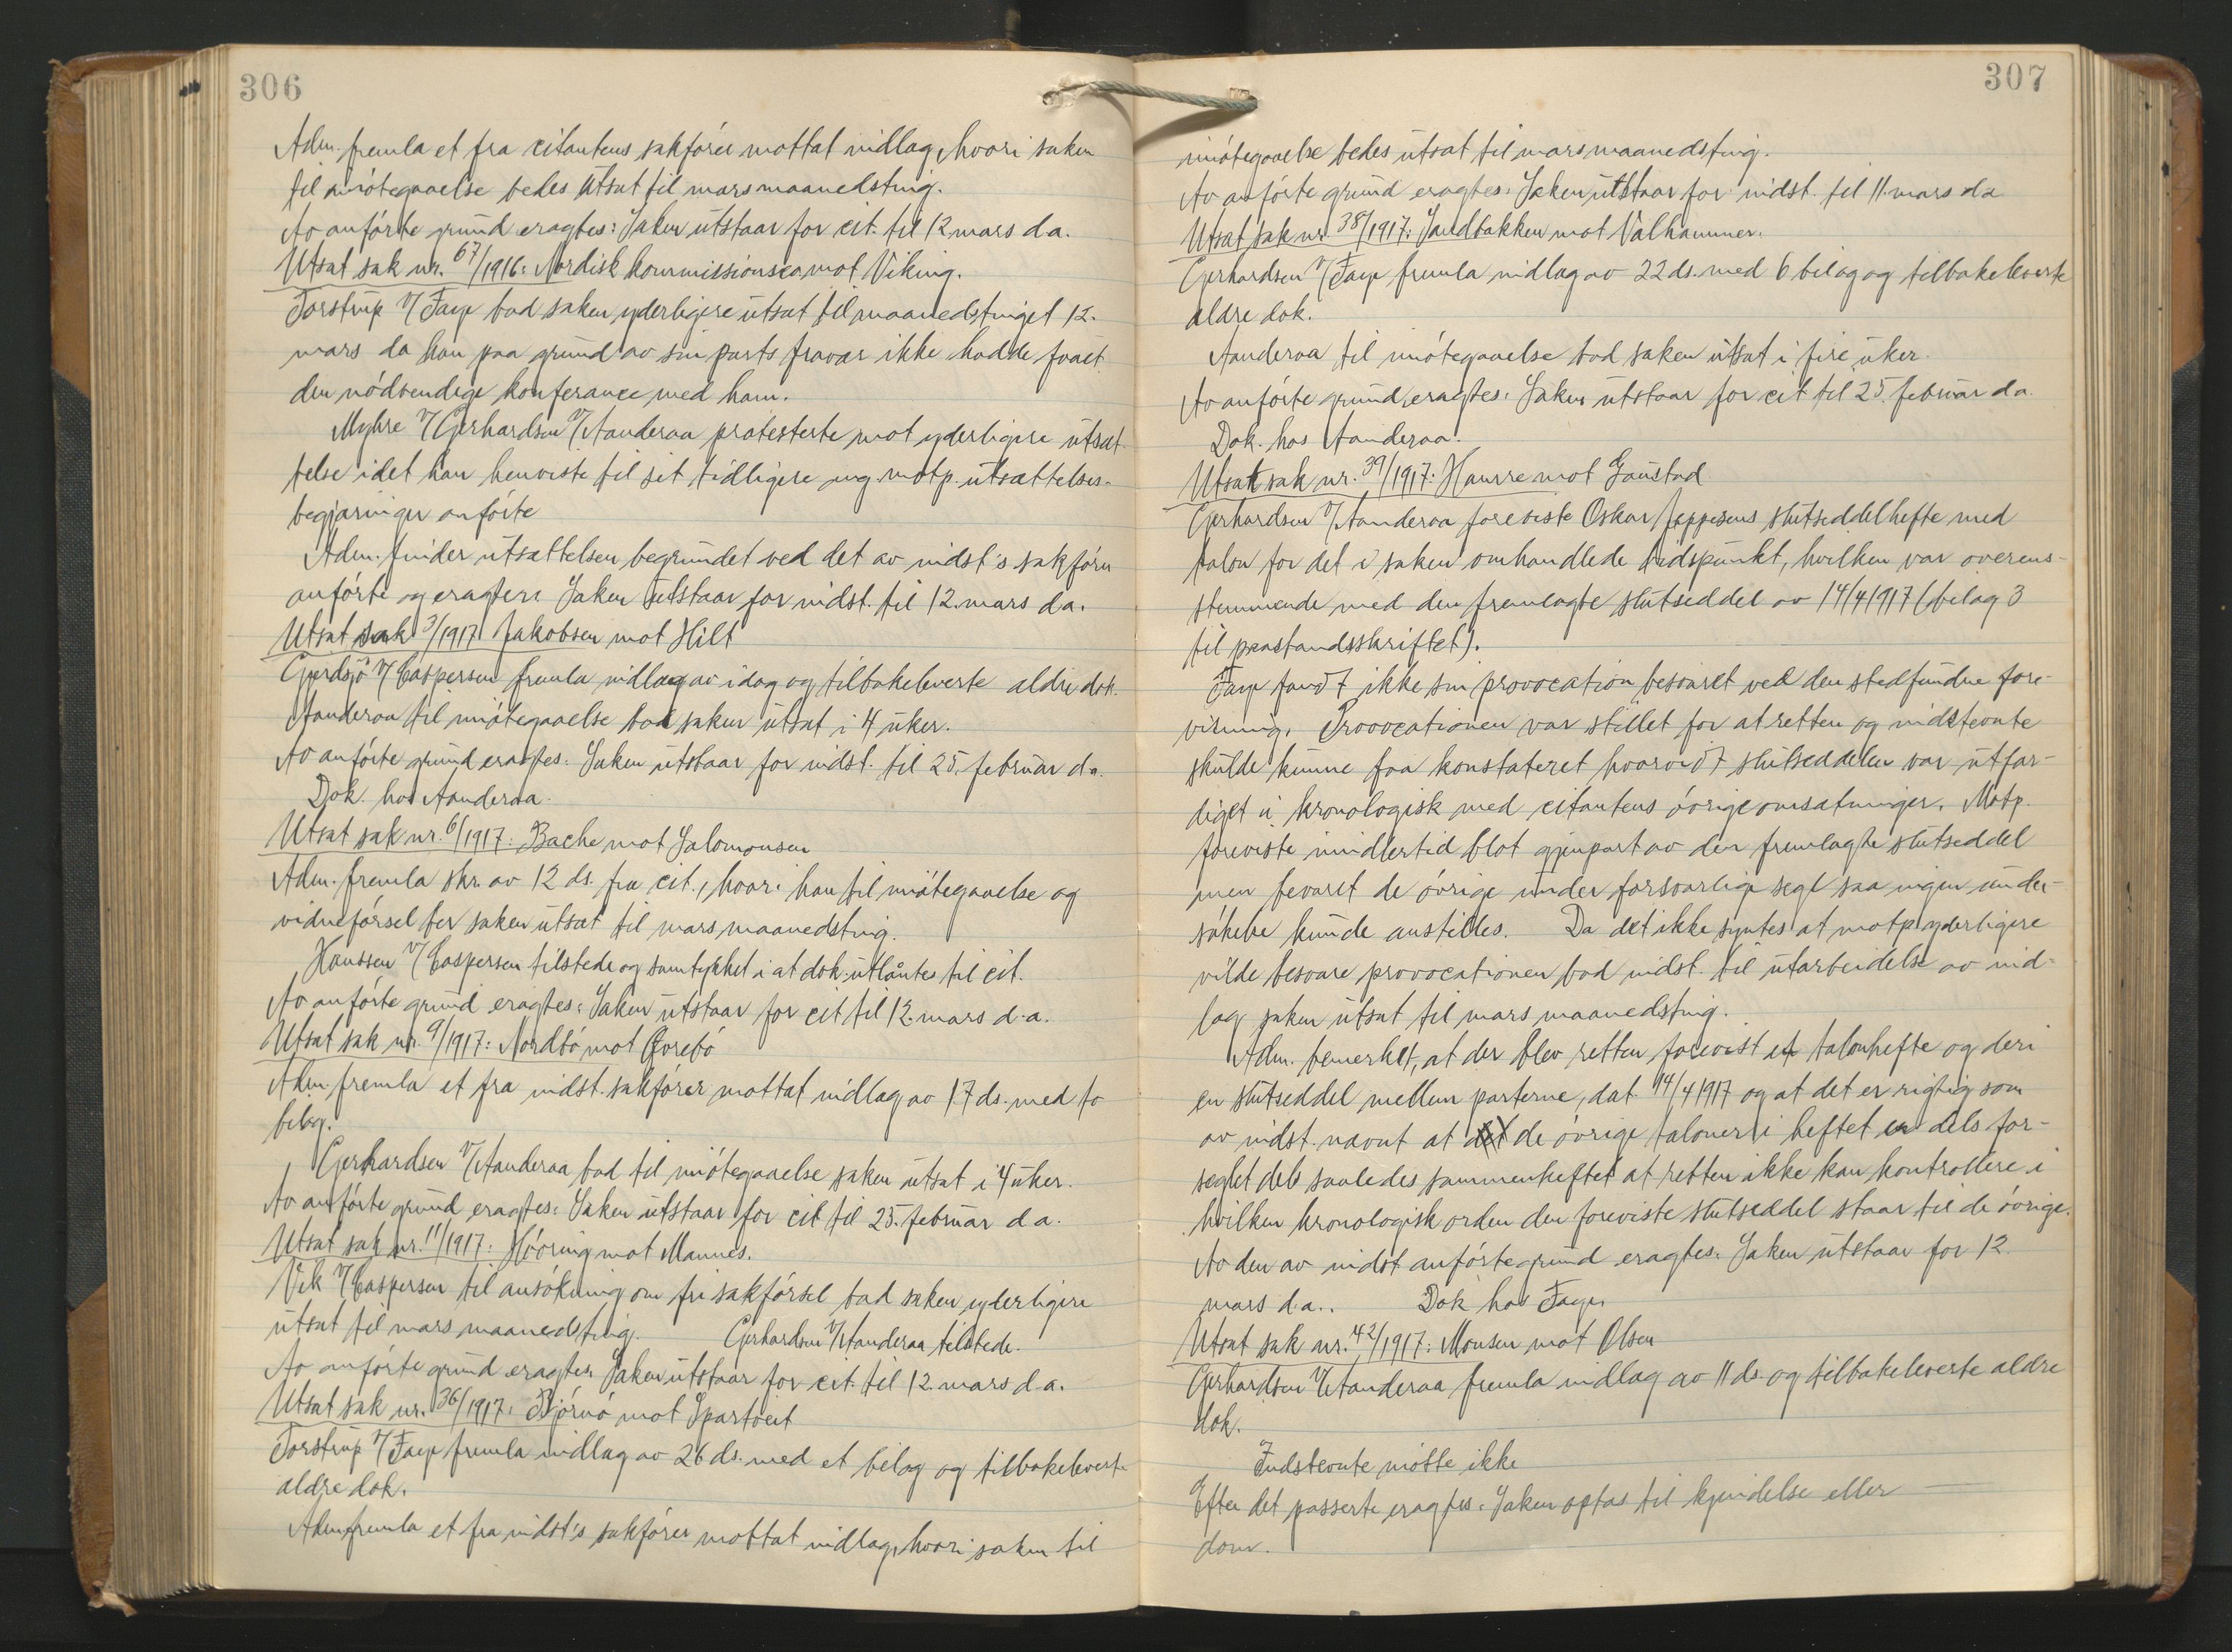 306
Adm. fremla et fra citantens sakfører mottat indlag, hvori saken
til imøtegaaelse bedes utsat til marsmaanedsting.
Av anførte grund eragtes: Saken utstaar for cit. til 12 mars d.a.
Utsat sak nr. 67/1916: Nordisk kommissionsco mot Viking.
Torstrup v/ Faye bad saken yderligere utsat til maanedstinget 12.
mars da han paa grund av sin parts fravær ikke hadde faaet
den nødvendige konferance med ham.
Myhre v/ Gerhardsen v/ Aanderaa protesterte mot yderligere utsæt-
telse idet han henviste til sit tidligere ang. motp. utsættelses-
begjæringer anførte
Adm. finder utsættelsen begrundet ved det av indst's sakfører
anførte og eragter: Saken utstaar for indst. til 12. mars d.a.
Utsat sak 3/1917 Jakobsen mot Hilt
Gjerdsjø v/ Caspersen fremla indlæg av idag og tilbakeleverte ældre dok.
Aanderaa til imøtegaaelse bad saken utsat i 4 uker.
Av anførte grund eragtes: Saken utstaar for indst. til 25. februar d.a.
Dok. hos Aanderaa.
Utsat sak nr. 6/1917: Bache mot Salomonsen
Adm. fremla skr. av 12 ds. fra cit., hvori han til imøtegaaelse og
vidneførsel ber saken utsat til mars maanedsting.
Hanssen v/ Caspersen tilstede og samtykket i at dok. utlåntes til cit.
Av anførte grund eragtes: Saken utstaar for cit til 12. mars d.a.
Utsat sak nr. 9/1917: Nordbø mot Gorebø
Adm. fremla et fra indst. sakfører mottat indlæg av 17 ds. med to
bilag.
Gerhardsen v/ Aanderaa bad til imøtegaaelse saken utsat i 4 uker.
Av anførte grund eragtes: Saken utstaar for cit til 25. februar d.a.
Utsat sak nr. 11/1917: Høvring mot Mannes.
Vik v/ Caspersen til ansøkning om fri sakførsel bad saken yderligere
utsat til mars maanedsting. Gerhardsen v/ Aanderaa tilstede.
Av anførte grund eragtes: Saken utstaar for cit. til 12. mars d.a.
Utsat sak nr. 36/1917: Bjørnø mot Spartveit
Torstrup v/ Faye fremla indlag av 26 ds. med et bilag og tilbakeleverte
ældre dok.
Adm. fremla et fra indst's sakfører mottat indlag, hvori saken til
307
imøtegaaelse bedes utsat til marsmaanedsting.
Av anførte grund eragtes: Saken utstaar for indst. til 11. mars d.a
Utsat sak nr. 38/1917: Sandbakken mot Valhammer.
Gerhardsen v/ Faye fremla indlag av 22 ds. med 6 bilag og tilbakeleverte
ældre dok.
Aanderaa til imøtegaaelse bad saken utsat i fire uker.
Av anførte grund eragtes: Saken utstaar for cit til 25. februar d.a.
Dok. hos Aanderaa.
Utsat sak nr. 39/1917: Hausse mot Gaustad
Gerhardsen v/ Aanderaa foreviste Oskar Jeppesens slutseddelhefte med
talon for det i saken omhandlede tidspunkt, hvilken var overens-
stemmende med den fremlagte slutseddel av 14/4 1917 (bilag 3
til paastandsskriftet).
Faye fandt ikke sin provocation besvaret ved den stedfundne fore-
visning. Provocationen var stillet for at retten og indstevnte
skulde kunne faa konstateret hvorvidt slutseddelen var utfær-
diget i kronologisk med citantens øvrige omsætninger. Motp.
foreviste imidlertid blot gjenpart av den fremlagte slutseddel
men bevaret de øvrige under forsvarlig segl saa ingen under-
søkelse kunde anstilles. Da det ikke syntes at motp. yderligere
vilde besvare provocationen bad indst. til utarbeidelse av ind-
lag saken utsat til mars maanedsting.
Adm. bemerket, at der blev retten forevist et talonhefte og deri
en slutseddel mellem parterne, dat. 14/4 1917 og at det er rigtig som
av indst. nævnt at det de øvrige taloner i heftet er dels for-
seglet dels saaledes sammenheftet at retten ikke kan kontrollere i
hvilken kronologisk orden den foreviste slutseddel staar til de øvrige.
Av den av indst anførte grund eragtes: Saken utstaar for 12.
mars d.a.. Dok hos Faye.
Utsat sak nr. 42/1917: Monsen mot Olsen
Gerhardsen v/ Aanderaa fremla indlag av 11 ds. og tilbakeleverte ældre
dok.
Indstevnte møtte ikke
Efter det passerte eragtes: Saken optas til kjendelse eller
dom.